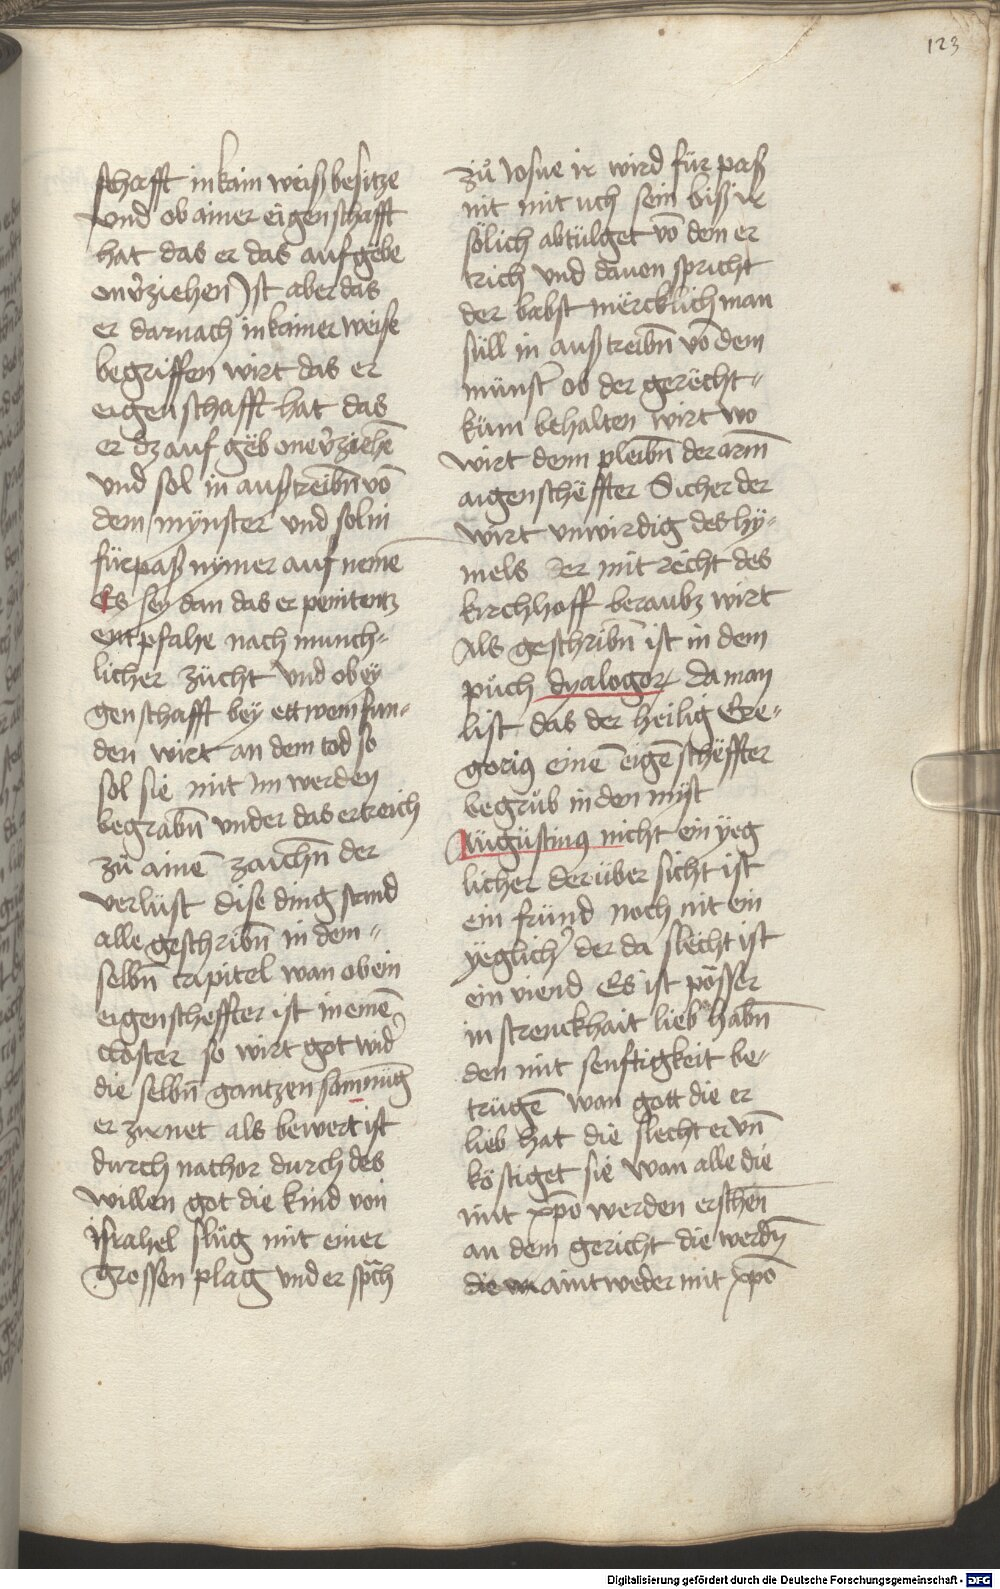 123
schafft in kain weiß besitze
Vnd ob ainer eigenschafft
hat das er das auf gebe
on v̓ziehen Ist aber das
er darnach in kainer weise
begriffen wirt das er
eigenschafft hat das
er dz auf geb one v̓ziehē
vnd sol in außtreibn̄ vō
dem mynster vnd sol in
fürpaß nymer auf neme
Es sey dan das er penitentz
entpfahe nach munch⸗
licher zücht vnd ob ey
genschafft bey ettwem fun⸗
den wirt an dem tod so
sol sie mit im werden
begrabn̄ vnder das ertreich
zů ainē zaichn̄ der
verlüst dise ding stand
alle geschribn̄ in dem⸗
selbn̄ capitel wan ob ein
eigenscheffter ist in einē
closter so wirt got wid̓
die selbn̄ gantzen samnūg
er zurnet als bewert ist
durch nathor durch des
willen got die kind von
israhel slůg mit einer
grossen plag vnd er sp̄ch
zů Iosue ir wird für paß
nit mit uch sein biß ir
sölich abtülget vō dem er
trich vnd dauon spricht
der babst mërcklich man
süll in außtreibn̄ vō dem
münst̓ ob der gerëcht⸗
küm behalten wirt wo
wirt denn pleibn̄ der arm̄
aigenscheffter Sicher der
wirt vnwirdig des hÿ⸗
mels der mit rëcht des
kirchhoff beraubz wirt
Als geschribn̄ ist in dem
půch dyalogor da man
list das der heilig Gre⸗
gorig einē eigēscheffter
begrůb in den mist
Augüstinus nicht ein yeg
licher der über sicht ist
ein fründ noch nit ein
yeglich̓ der da slecht ist
ein viend Es ist pösser
in strenckhait lieb habn̄
den mit senftigkeit be⸗
trügē wan gott die er
lieb hat die slecht er vn̄
köstiget sie wan alle die
mit xp̄o werden erschen̄
an dem gericht die werdn̄
aintweder mit xp̄o
Digitalisierung gefördert durch die Deutsche Forschungsgemeinschaft - DFG